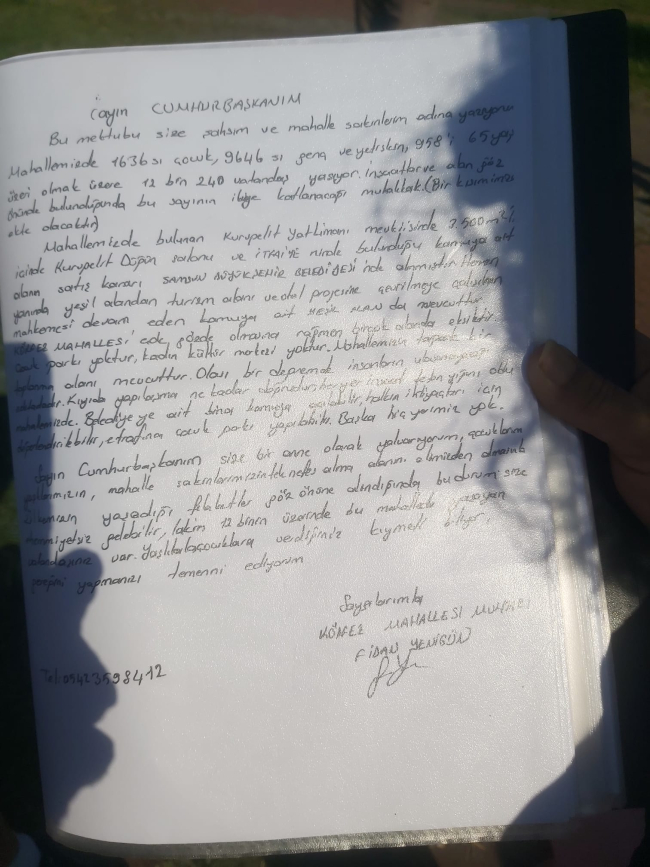 Sayın CUMHURBAŞKANIM
Bu mektubu size şahsım ve mahalle sakinlerim adına yazıyorum
Mahallemizde 1636 sı çocuk, 9646 sı genç ve yetişkin, 958'i 65 yaş
üzeri olmak üzere 12 bin 240 vatandaş yaşıyor. inşaatlar ve alan göz
önünde bulundığunda bu sayının ikiye katlanacağı mutlaktak. (Bir kısım imza
ekte olacaktır)
Mahallemizde bulunan Kurupelit Yat Limanı mevkiisinde 7.500 m²'lik
içinde Kurupelit Düğün salonu ve İTFAİYE ninde bulunduğu kamuya ait
alanın satış kararı SAMSUN BÜYÜKŞEHİR BELEDİYESİ'nde alınmıştır. Hemen
yanında yeşil alandan turizm alanı ve otel projesine çevrilmeye çalışılan
mahkemesi devam eden kamuya ait ALAN da mevcuttur.
MAHALLESİ gözde olmasına rağmen birçok alanda eksiktir.
Çocuk parkı yoktur, kadın kültür merkezi yoktur. Mahallemizin toplasak bir
toplanma alanı mevcuttur. Olası bir depremde insanların
Kıyıda yapılaşma ne kadar doğrudur, her yer
mahallemizde. Belediye ye ait bina kamuya açılabilir, halkın ihtiyaçları için
değerlendirilebilir, etrafına çocuk parkı yapılabilir. Başka hiç yerimiz yok.
Sayın Cumhurbaşkanım size bir anne olarak yalvarıyorum, çocukların
mahalle sakinlerimizin tek nefes alma alanını elimizden almayın
yaşadığı felaketler göz önüne alındığında bu durum size
ehemmiyetsiz gelebilir, lakin 12 binin üzerinde bu mahallede yaşayan
vatandaşınız var. Yaşlılara, çocuklara verdiğiniz kıymeti biliyor,
gereğini yapmanızı temenni ediyorum
Saygılarımla
KÖRFEZ MAHALLESİ MUHTARI
FİDAN YENİGÜN
Tel: 05423598412